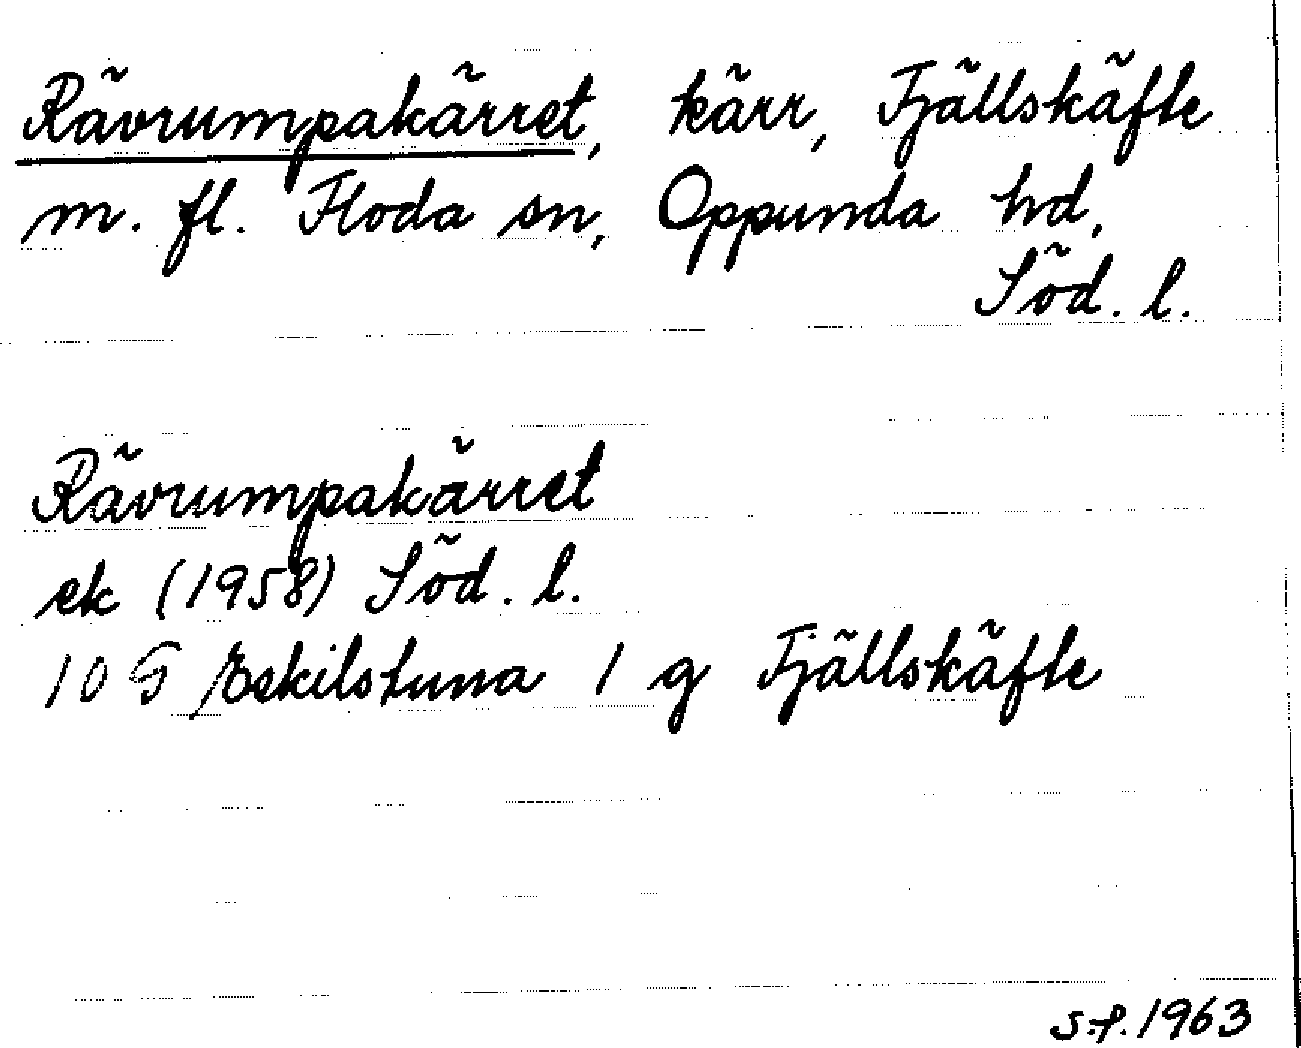 Rävrumpakärret, kärr, Fjällskäfte
m. fl. Floda sn, Oppunda hd,
Söd. l.
Rävrumpakärret
ek (1958) Söd. l.
10 G Eskilstuna 1 g Fjällskäfte
s.f. 1963